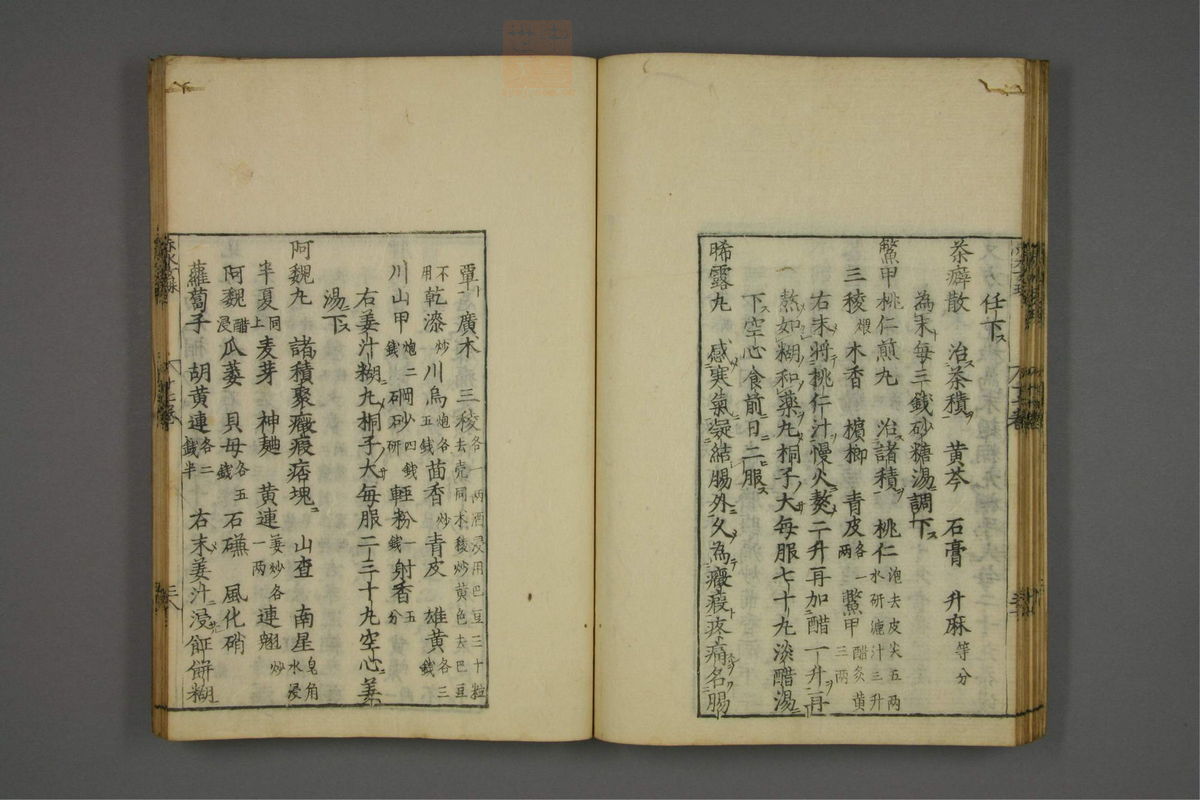 任下ス
茶癖散　治茶積　黄芩　石膏　升麻等分
為末每三錢砂糖湯調下ス
鱉甲桃仁煎丸　治諸積　桃仁泡去皮尖五两水研漉汁三升
三稜煨　木香　檳榔　青皮各一两　鱉甲醋炙黄三两
右末將桃仁汁慢火熬二升再加醋一升再
熬如糊和藥丸桐子大每服七十丸淡醋湯
下空心食前日二服ス
晞露丸　感寒氣凝結腸外久為癥瘕疼痛名腸
覃　廣木　三稜各一两酒浸用巴豆三十粒去壳同木稜炒黄色去巴豆
不用　乾漆炒　川烏炮各五錢　茴香炒　青皮　雄黄各三錢
川山甲炮二錢　硇砂四錢研　輕粉一錢　射香五分
右姜汁糊丸桐子大每服二三十丸空心姜
湯下ス
阿魏丸　諸積聚癥瘕痞塊　山查　南星皂角水浸
半夏同上　麦芽　神麯　黄連姜炒各一两　連翹
阿魏醋浸　瓜蔞　貝母各五錢　石礆　風化硝
蘿蔔子　胡黄連各二錢半　右末姜汁浸䭔餅糊